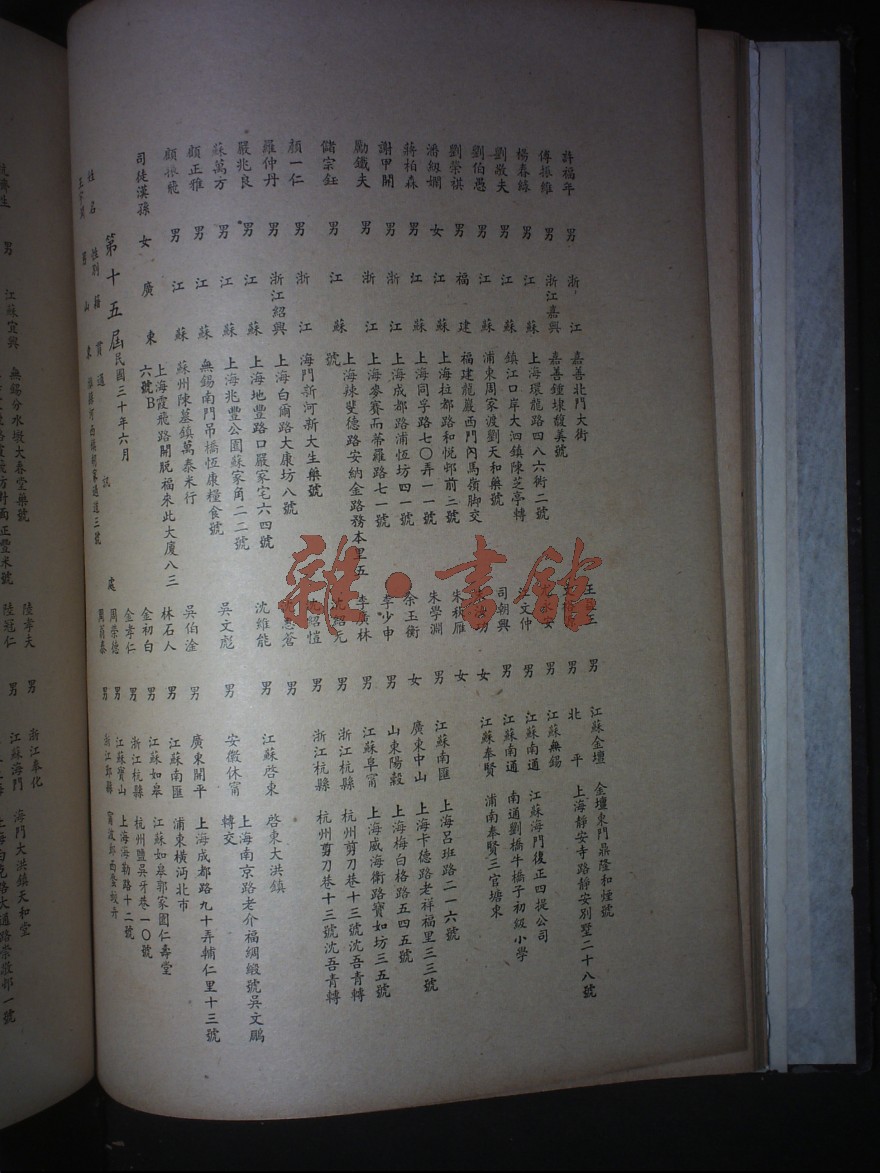 許福年 男 浙江 嘉善北門大街
傅振維 男 浙江嘉興 嘉善鍾埭馥美號
楊春綠 男 江蘇 上海環龍路四八六衖二號
劉敬夫 男 江蘇 鎮江口岸大泗鎮陳芝亭轉
劉伯愚 男 江蘇 浦東周家渡劉天和藥號
劉榮祺 男 福建 福建龍巖西門內馬嶺脚交
潘級嫻 女 江蘇 上海拉都路和悅邨前三號
蔣柏森 男 江蘇 上海同孚路七〇弄一一號
謝甲開 男 浙江 上海成都路浦恆坊四一號
勵鐵夫 男 浙江 上海麥賽而蒂羅路七一號
儲宗鈺 男 江蘇 上海辣斐德路安納金路務本里五
號
顏一仁 男 浙江 海門新河新大生藥號
羅仲丹 男 浙江紹興 上海白爾路大康坊八號
嚴兆良 男 江蘇 上海地豐路口嚴家宅六四號
蘇萬方 男 江蘇 上海兆豐公園蘇家角二二號
顧正雅 男 江蘇 無錫南門吊橋恆康糧食號
顧振 男 江蘇 蘇州陳墓鎮萬泰米行
司徒漢孫 女 廣東 上海霞飛路開脫福來此大廈八三
六號B
第十五屆 民國三十年六月
姓名 性別 籍貫 通訊處
男 山東
男 江蘇金壇 金壇東門鼎隆和煙號
男 北平 上海靜安寺路靜安別墅二十八號
安 男 江蘇無錫
文仲 男 江蘇南通 江蘇海門復正四提公司
司朝興 男 江蘇南通 南通劉橋牛橋子初級小學
女 江蘇奉賢 浦南奉賢三官塘東
朱秋雁 女
朱學淵 男 江蘇南匯 上海呂班路二一六號
余玉衡 女 廣東中山 上海卡德路老祥福里三三號
李少申 男 山東陽穀 上海梅白格路五四五號
李廣林 男 江蘇阜甯 上海威海衛路寶如坊三五號
沈紹元 男 浙江杭縣 杭州剪刀巷十三號沈吾青轉
沈紹愷 男 浙江杭縣 杭州剪刀巷十三號沈吾青轉
沈惠蒼 男
沈維能 男 江蘇啓東 啓東大洪鎮
吳文彪 男 安徽休甯 上海南京路老介福綢緞號吳文鵬
轉交
吳伯淦 男 廣東開平 上海成都路九十弄輔仁里十三號
林石人 男 江蘇南匯 浦東橫沔北市
金初白 男 江蘇如皋 江蘇如皋郭家園仁壽堂
金孝仁 男 浙江杭縣 杭州鹽吳牙巷一〇號
周榮德 男 江蘇寶山 上海海勒路十二號
男 浙江鄞縣
陸孝夫 男 浙江奉化
陸冠仁 男 江蘇海門 海門大洪鎮天和堂
男 江蘇宜興 無錫分水墩大春堂藥號
雜·書館